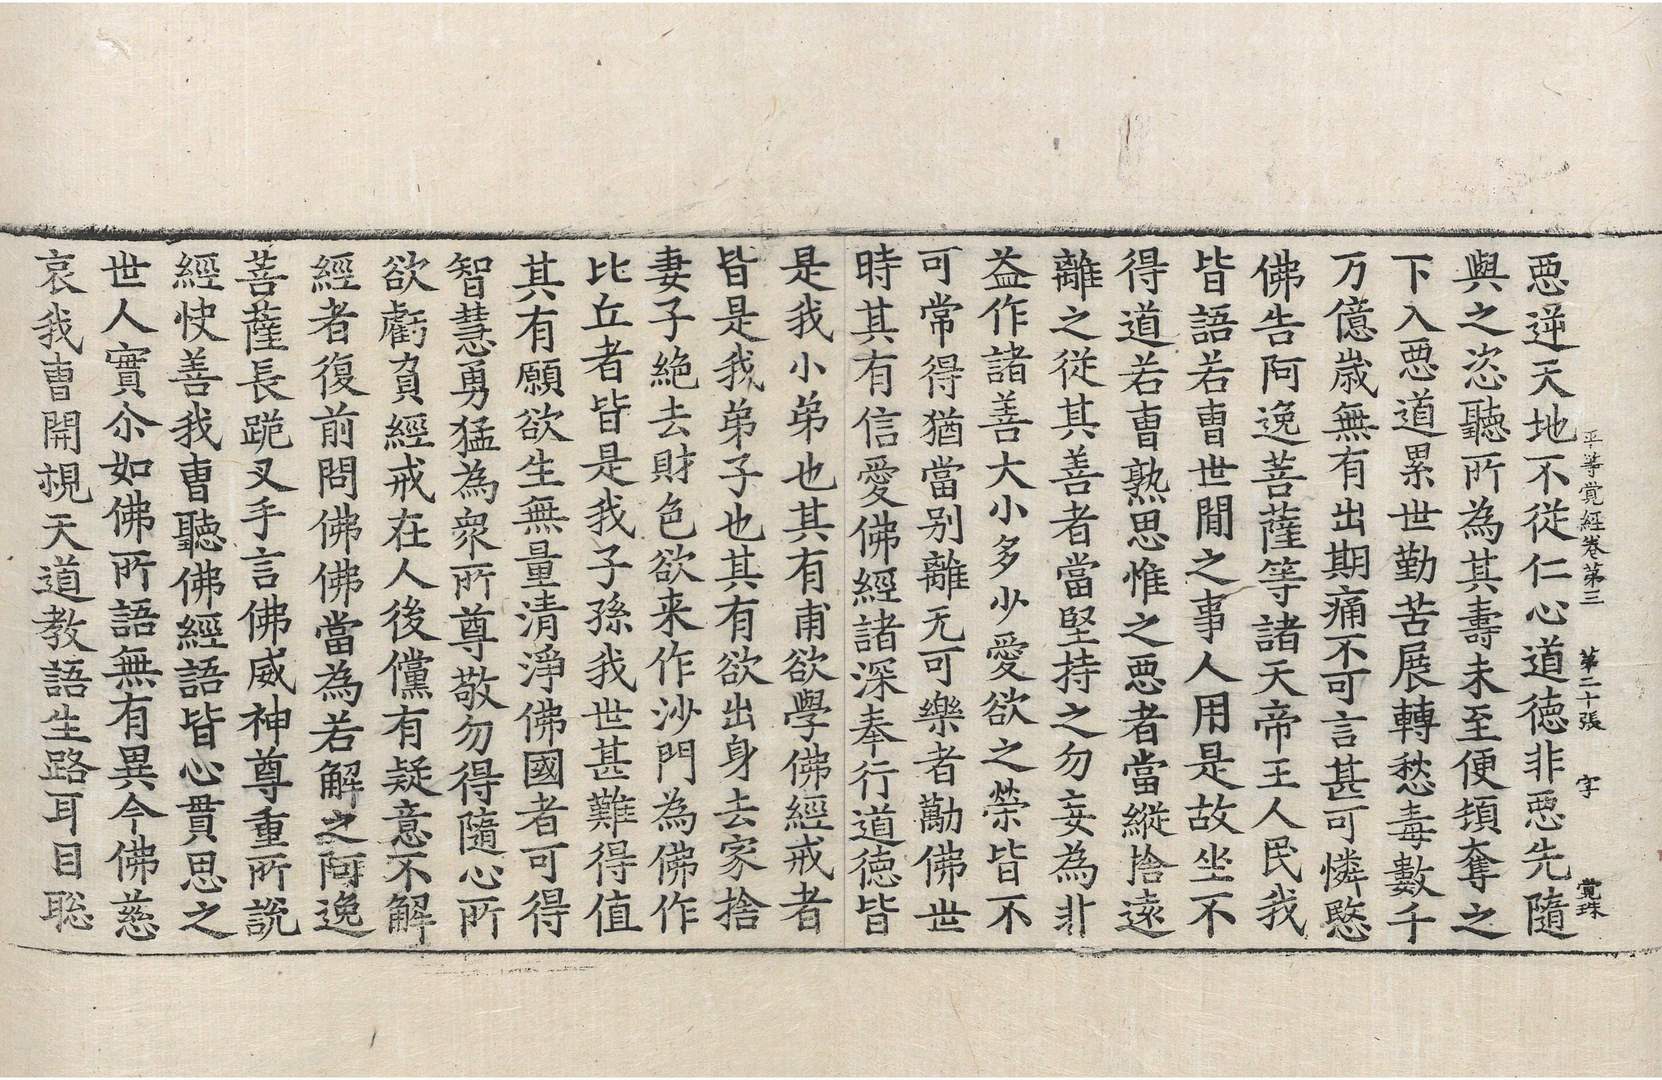 平等覺經卷第三　第二十張　字　覺珠
惡逆天地不從仁心道德非惡先隨
與之恣聽所為其壽未至便頓奪之
下入惡道累世勤苦展轉愁毒數千
万億歲無有出期痛不可言甚可憐愍
佛告阿逸菩薩等諸天帝王人民我
皆語若曹世間之事人用是故坐不
得道若曹熟思惟之惡者當縱捨遠
離之從其善者當堅持之勿妄為非
益作諸善大小多少愛欲之榮皆不
可常得猶當別離无可樂者勵佛世
時其有信愛佛經諸深奉行道德皆
是我小弟也其有甫欲學佛經戒者
皆是我弟子也其有欲出身去家捨
妻子絶去財色欲来作沙門為佛作
比丘者皆是我子孫我世甚難得值
其有願欲生無量清淨佛國者可得
智慧勇猛為衆所尊敬勿得隨心所
欲虧負經戒在人後儻有疑意不解
經者復前問佛佛當為若解之阿逸
菩薩長跪叉手言佛威神尊重所說
經快善我曹聽佛經語皆心貫思之
世人實尒如佛所語無有異今佛慈
哀我曹開視天道教語生路耳目聡